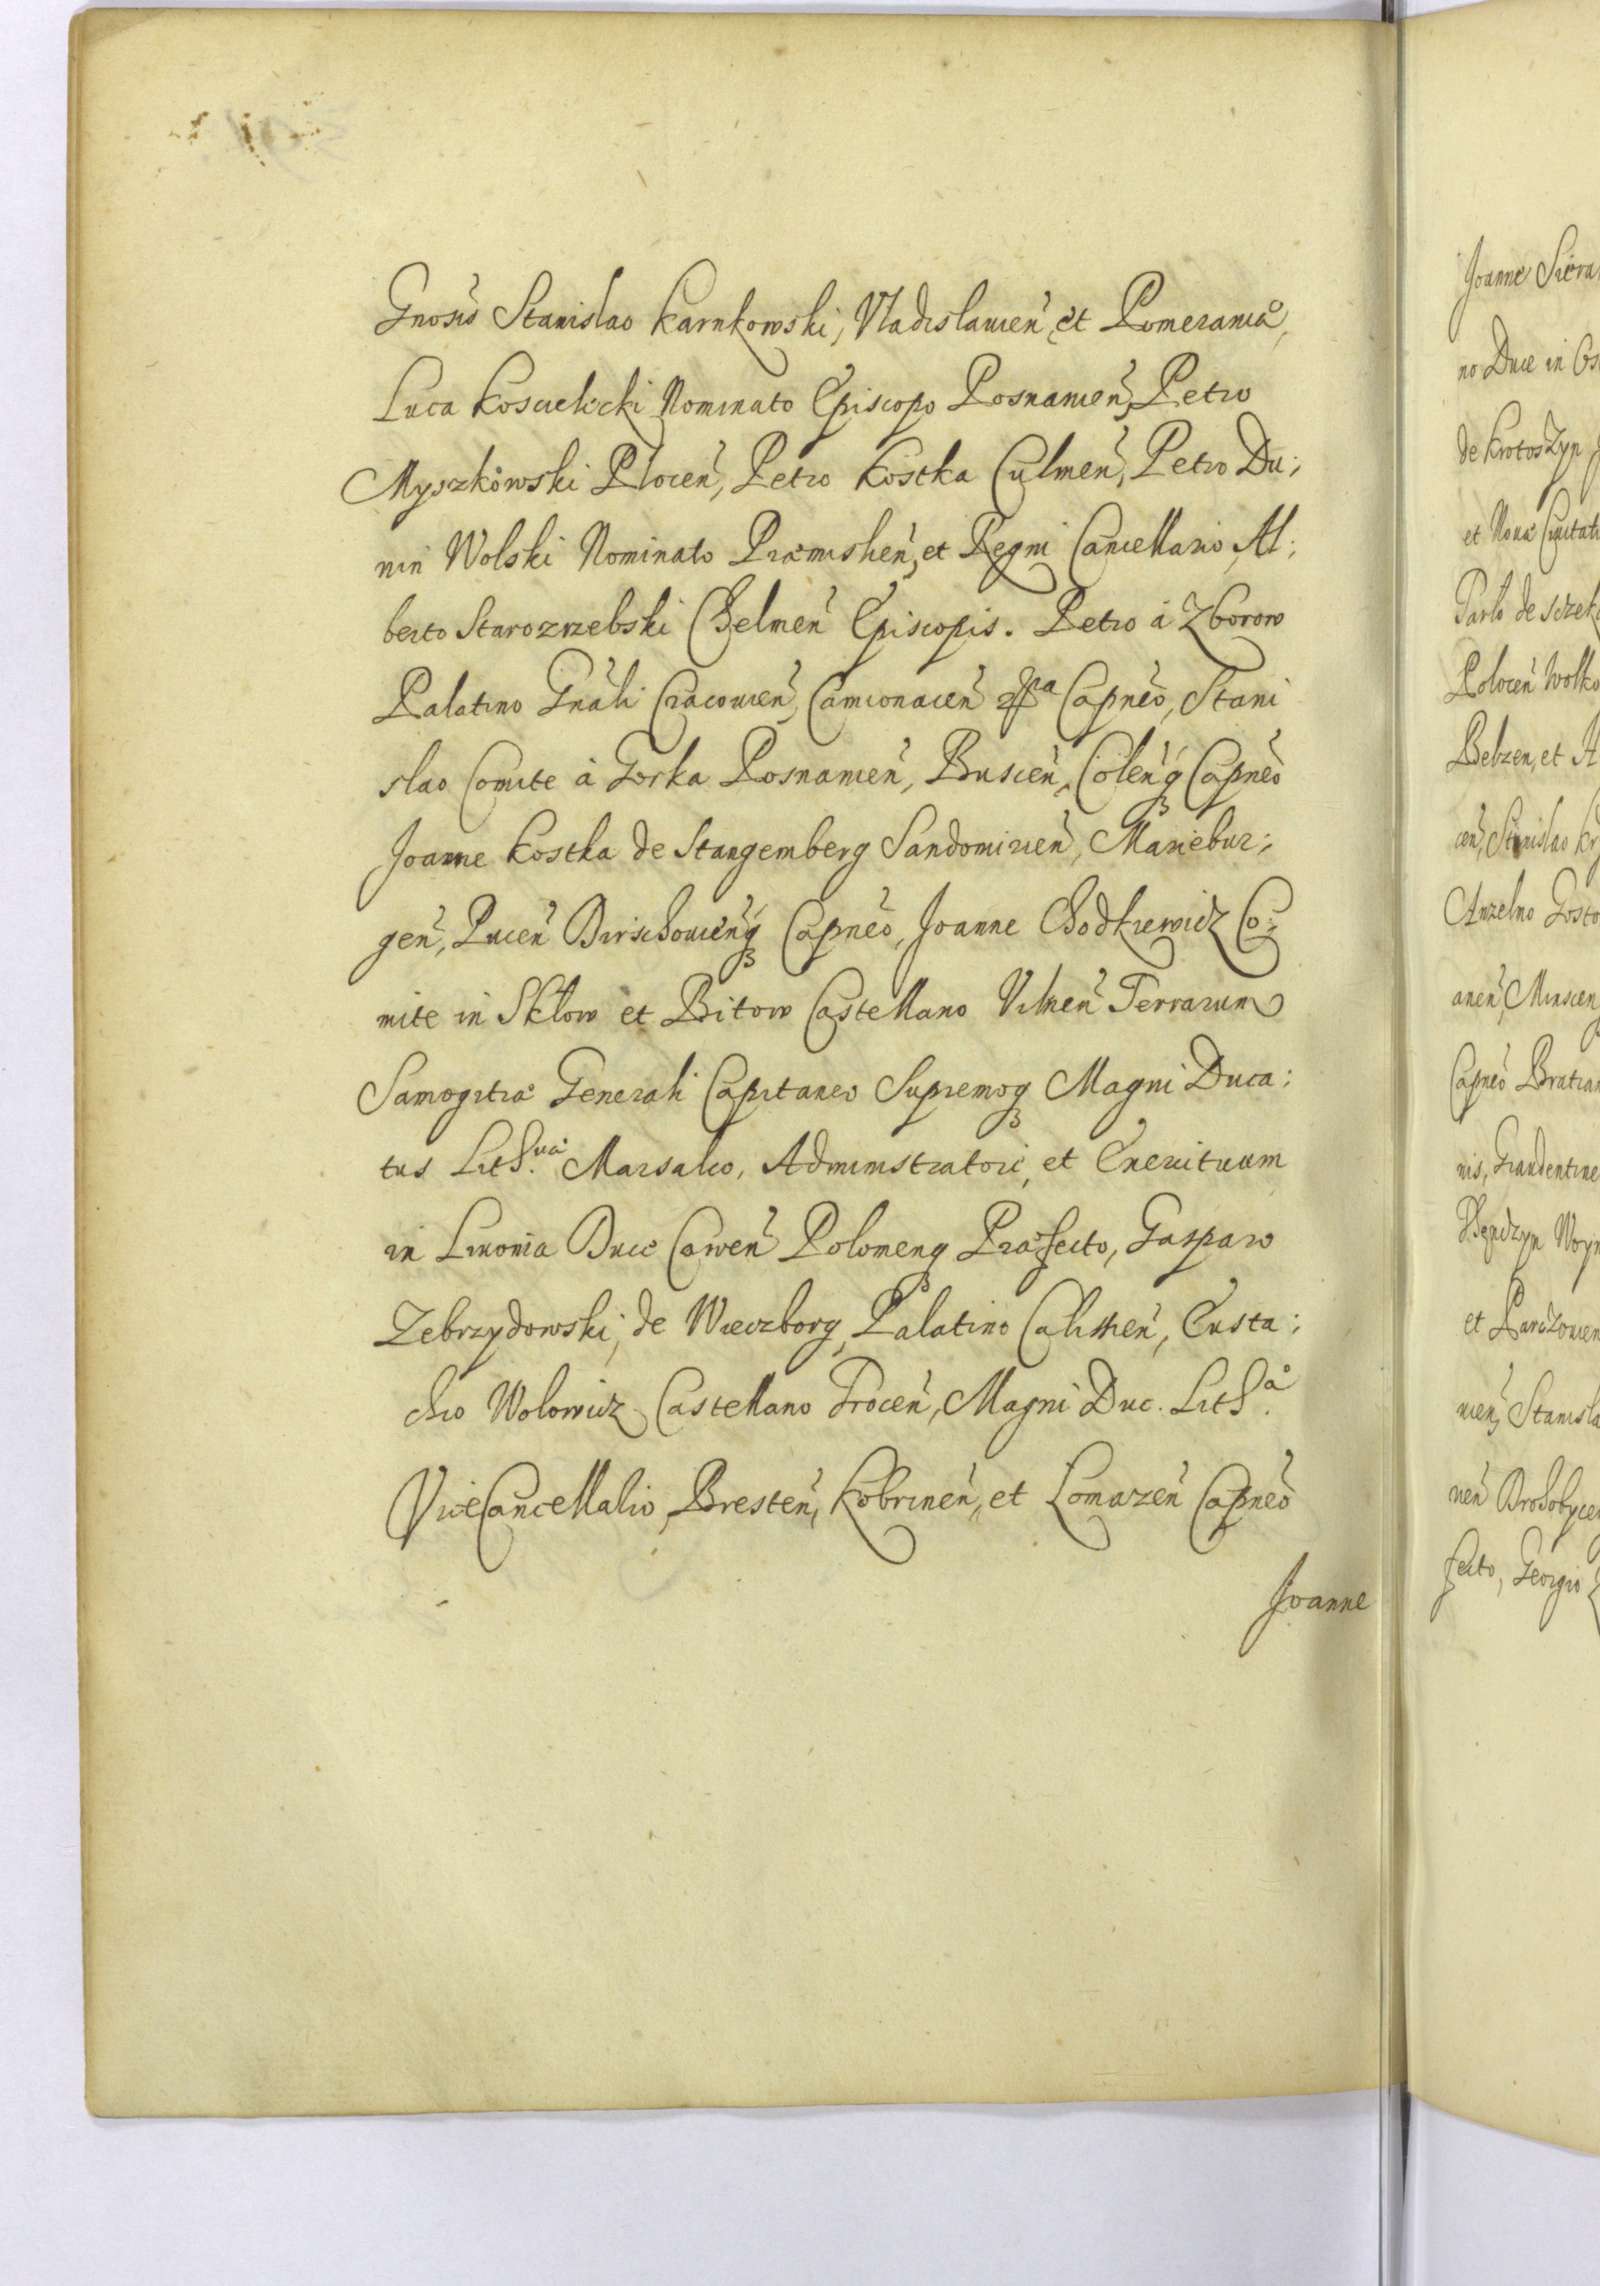 Gnosis Stanislao Karnkowski, Vladislauień, et Pomeraniæ,
Luca Koscielicki Nominato Episcopo Posnanień, Petro
Myszkowski Ploceń, Petro Kostka Culmeń, Petro Du:
nin Wolski Nominato Præmislień, et Regni Cancellario, Al:
berto Starozrzebski Chelmeń Episcopis. Petro à Zborow
Palatino Gnâli Cracouień, Camionaceń Capnêo, Stani
slao Comite à Gorka Posnanień, Busceń, Coleńq Capnêo
Joanne Kostka de Stangemberg Sandomirień, Mariebur:
geń, Puceń Dirschouieńq Capnêo, Joanne Chodkiewicz Co:
mite in Sklow et Bitow Castellano Vilneń Terrarum
Samogitiæ Generali Capitaneo Supremoq Magni Duca:
tus Lith.uæ Marsalco, Administratori, et Exercituum
in Liuonia Duce Cawen Plotmenq Præfecto, Gasparo
Zebrzydowski, de Wieczborg, Palatino Calisień, Eusta:
chio Wolowicz Castellano Troceń, Magni Duc. Lith.æ
ViceCancellalio, Bresteń, Kobrineń, et Lomazeń Capnêo
Joanne
Joanne Siera
no Duce in
de Krotoszyn
et Noua Ciuitati
Parlo de
Poloceń Wolko
Belzen, et
ceń, Stanislao
Anzelmo Gosto
aneń, Minscen
Capnêo Bratian
nis, Graudentine
et Parczouien
uień, Stanisla
neń Drohobyce
fecto, Georgio